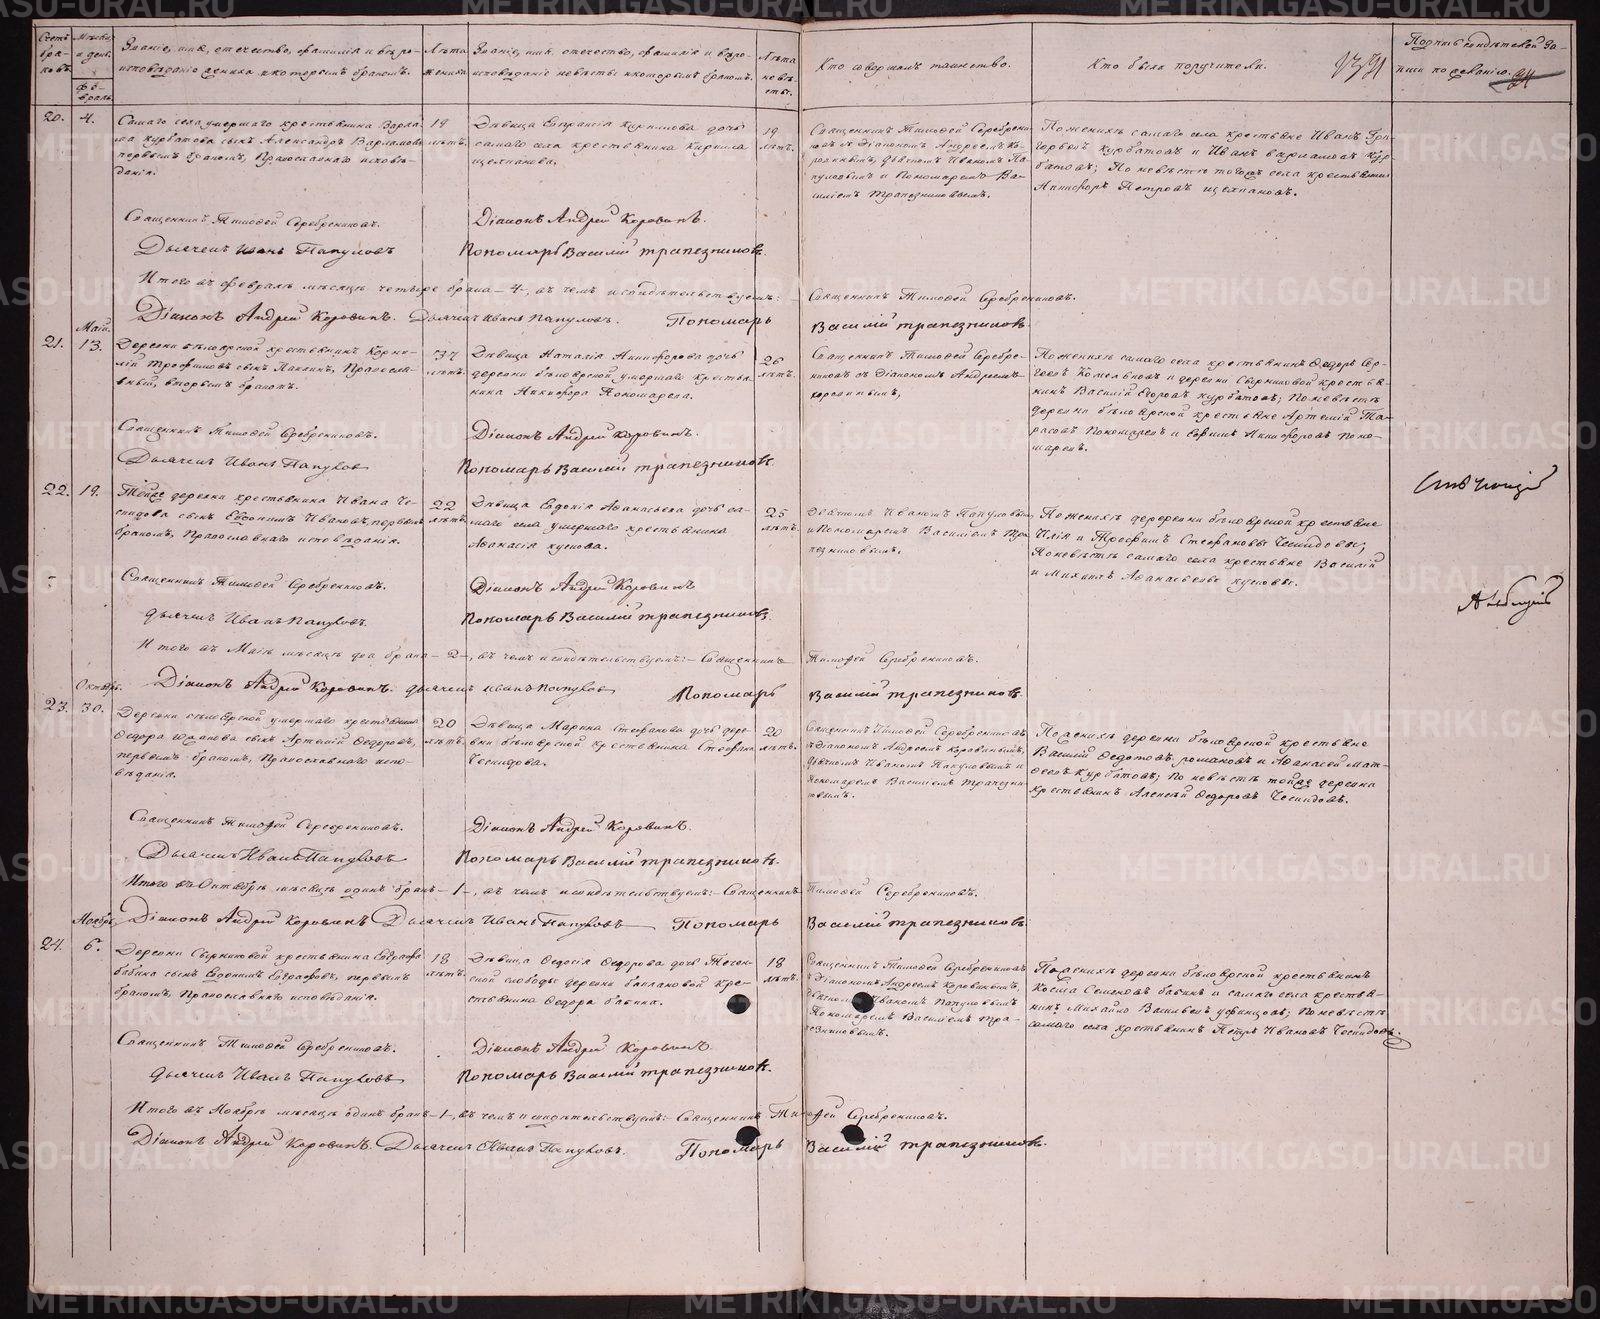 Счетъ браковъ.
Мѣсяцъ и день.
Февраль.
Званіе, имя, отечество, фамилія и вѣроисповѣданіе жениха и которымъ бракомъ.
Лѣта жениха
Званіе, имя, отечество, фамилія и вѣроисповѣданіе невѣсты и которымъ бракомъ.
Лѣта невѣсты.
Кто совершалъ таинство.
Кто были поручители.
Подпись свидѣтелей записи по желанію.
20.
4.
Самаго села умершаго крестьянина Варла-
ма Курбатова сынъ Александръ Варламовъ
первымъ бракомъ, Православнаго исповѣ-
данія.
19
лѣтъ.
Дѣвица Евпраксія Кирилова дочь
самаго села крестьянина Кирилла
19.
лѣтъ.
Священникъ Тимофей Серебрени-
ковъ съ Діакономъ Андреемъ Ко-
ровинымъ, дьячкомъ Иваномъ Па-
пуловымъ и Пономаремъ Ва-
силіемъ Трапезниковымъ.
По женихѣ самаго села крестьяне Иванъ Гри-
горьевъ Курбатовъ и Иванъ Варламовъ Кур-
батовъ; По невѣстѣ тогожъ села крестьянинъ
Никифоръ Петровъ
Священникъ Тимофей Серебрениковъ.
Діаконъ Андрей Коровинъ.
Дьячекъ Иванъ Папуловъ
Пономарь Василій Трапезниковъ.
Итого въ февралѣ мѣсяцѣ четыре брака -4-, въ чемъ и свидѣтельствуемъ: - Священникъ Тимофей Серебрениковъ.
Діаконъ Андрей Коровинъ. Дьячекъ Иванъ Папуловъ. Пономарь Василій Трапезниковъ.
Май.
21.
13.
Деревни Бѣлоярской крестьянинъ Корни-
лій Трофимовъ сынъ Православ-
ный, вторымъ бракомъ.
37
лѣтъ.
Дѣвица Наталія Никифорова дочь
деревни Бѣлоярской умершаго крестья-
нина Никифора Пономарева.
26
лѣтъ.
Священникъ Тимофей Серебре-
никовъ съ Діакономъ Андреемъ
Коровинымъ,
По женихѣ самаго села крестьянинъ Федоръ Сер-
геевъ и деревни Сыркиковой крестья-
нинъ Василій Егоровъ Курбатовъ; По невѣстѣ
деревни Бѣлоярской крестьяне Артемій Та-
расовъ Пономаревъ и Ефимъ Никифоровъ Поно-
маревъ.
Священникъ Тимофей Серебрениковъ.
Діаконъ Андрей Коровинъ.
Дьячекъ Иванъ Папуловъ
Пономарь Василій Трапезниковъ.
22.
19.
Тойже деревни крестьянина Ивана Че-
снидова сынъ Евдокимъ Ивановъ, первымъ
бракомъ, Православнаго исповѣданія.
22
лѣтъ.
Дѣвица Евдокія Афанасьева дочь са-
маго села умершаго крестьянина
Афанасія Кускова.
25
лѣтъ.
Дьячкомъ Иваномъ Папуловымъ
и Пономаремъ Василіемъ Тра-
пезниковымъ.
По женихѣ деревни Бѣлоярской крестьяне
Илія и Трофимъ Стефановы Чеснидовы,
По невѣстѣ самаго села крестьяне Василій
и Михаилъ Афанасьевы Кусковы.
Священникъ Тимофей Серебрениковъ.
Діаконъ Андрей Коровинъ
Дьячекъ Иванъ Папуловъ.
Пономарь Василій Трапезниковъ.
Итого въ Маіѣ мѣсяцѣ два брака -2-, въ чемъ и свидѣтельствуемъ: - Священникъ Тимофей Серебрениковъ.
Діаконъ Андрей Коровинъ. Дьячекъ Иванъ Папуловъ Пономарь Василій Трапезниковъ.
Октябрь.
23.
30.
Деревни Бѣлоярской умершаго крестьянина
Федора сынъ Артемій Федоровъ,
первымъ бракомъ, Православнаго испо-
вѣданія.
20
лѣтъ.
Дѣвица Марина Стефанова дочь дере-
вни Бѣлоярской крестьянина Стефана
Чеснидова.
20
лѣтъ.
Священникъ Тимофей Серебрениковъ
съ Діакономъ Андреемъ Коровинымъ,
Дьячкомъ Иваномъ Папуловымъ и
Пономаремъ Василіемъ Трапезни-
ковымъ.
По женихѣ деревни Бѣлоярской крестьяне
Василій Федотовъ Романовъ и Афанасій Мат-
фѣевъ Курбатовъ; По невѣстѣ тойже деревни
крестьянинъ Алексѣй Федоровъ Чеснидовъ.
Священникъ Тимофей Серебрениковъ.
Діаконъ Андрей Коровинъ.
Дьячекъ Иванъ Папуловъ
Пономарь Василій Трапезниковъ.
Итого въ Октябрѣ мѣсяцѣ одинъ бракъ -1-, въ чемъ и свидѣтельствуемъ: - Священникъ Тимофей Серебрениковъ.
Діаконъ Андрей Коровинъ Дьячекъ Иванъ Папуловъ Пономарь Василій Трапезниковъ.
Ноябрь
24.
6.
Деревни Сыркиковой крестьянина Евграфа
Бабина сынъ Евдокимъ Евграфовъ, первымъ
бракомъ, Православнаго исповѣданія.
18
лѣтъ.
Дѣвица Федосія Федорова дочь Течен-
ской слободы деревни Баклановой кре-
стьянина Федора Бабина.
18
лѣтъ.
Священникъ Тимофей Серебрениковъ
съ Діакономъ Андреемъ Коровинымъ,
дьячкомъ Иваномъ Папуловымъ
Пономаремъ Василіемъ Тра-
пезниковымъ.
По женихѣ деревни Бѣлоярской крестьянинъ
Косма Семеновъ Бабинъ и самаго села крестья-
нинъ Михайло Васильевъ Уфинцовъ; По невѣстѣ
самаго села крестьянинъ Петръ Ивановъ Чеснидовъ.
Священникъ Тимофей Серебрениковъ.
Діаконъ Андрей Коровинъ
Дьячекъ Иванъ Папуловъ
Пономарь Василій Трапезниковъ.
Итого въ Ноябрѣ мѣсяцѣ одинъ бракъ -1-, въ чемъ и свидѣтельствуемъ: - Священникъ Тимофей Серебрениковъ.
Діаконъ Андрей Коровинъ. Дьячекъ Иванъ Папуловъ. Пономарь Василій Трапезниковъ.
METRIKI.GASO-URAL.RU